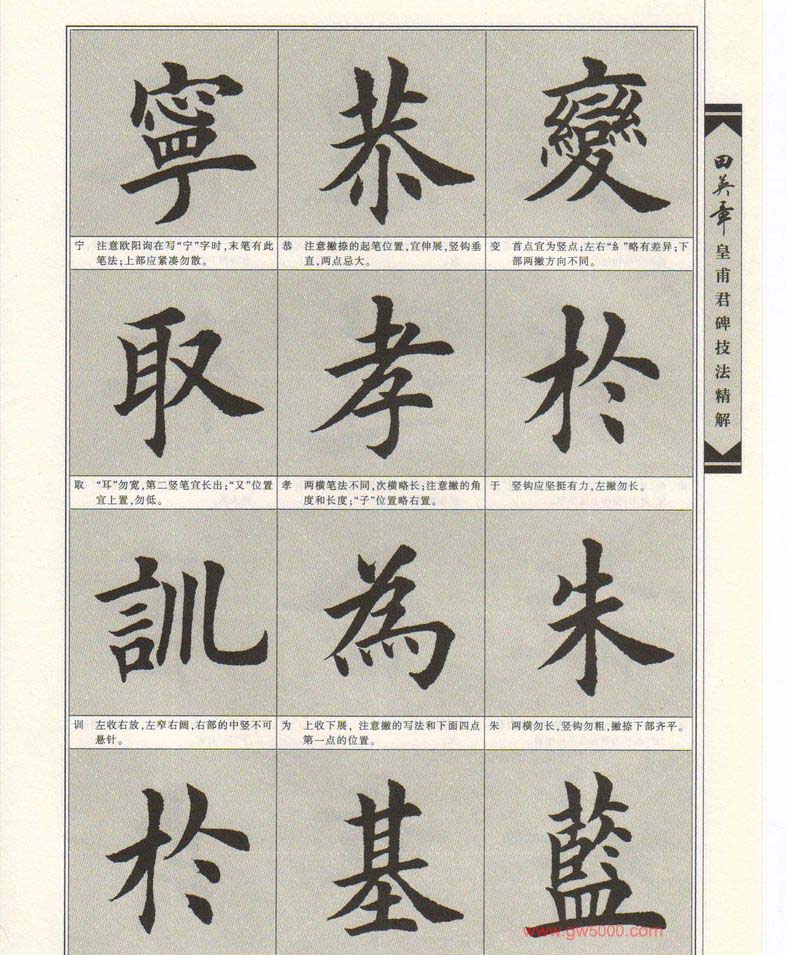 寧
恭
變
宁 注意欧阳询在写“宁”字时,末笔有此
笔法;上部应紧凑勿散。
恭 注意撇捺的起笔位置,宜伸展,竖钩垂
直,两点忌大。
变 首点宜为竖点;左右“糹”略有差异;下
部两撇方向不同。
取
孝
於
取 “耳”勿宽,第二竖笔宜长出;“又”位置
宜上置,勿低。
孝 两横笔法不同,次横略长;注意撇的角
度和长度;“子”位置略右置。
于 竖钩应坚挺有力,左撇勿长。
訓
為
朱
训 左收右放,左窄右阔,右部的中竖不可
悬针。
为 上收下展，注意撇的写法和下面四点
第一点的位置。
朱 两横勿长,竖钩勿粗,撇捺下部齐平。
於
基
藍
田英章
皇甫君碑技法精解
www.gw5000.com